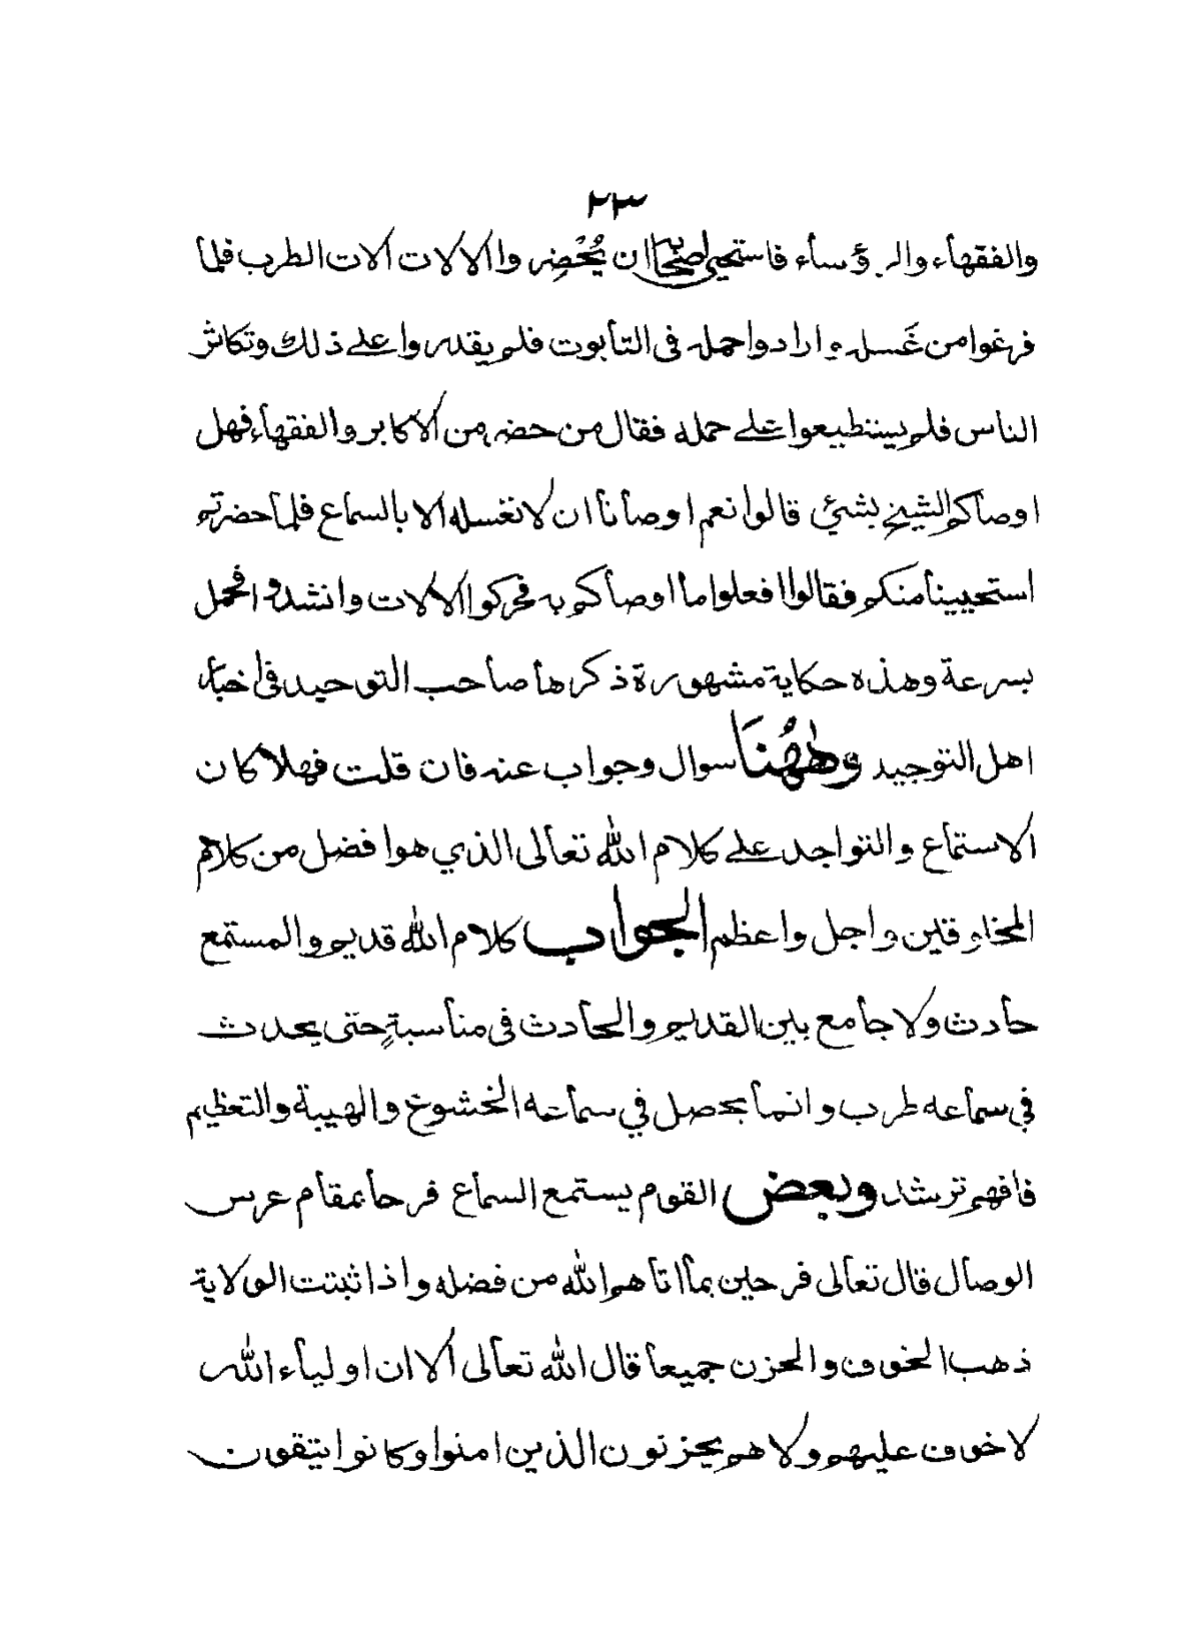 ٢٣
والفقهاء والرؤساء فاستحيى اصحابه ان يُحْضِروا الالات الات الطرب فلما
فرغوا من غَسله وارادوا حمله فى التابوت فلم يقدروا على ذلك وتكاثر
الناس فلم يستطيعوا على حمله فقال من حضر من الاكابر والفقهاء فهل
اوصاكم الشيخ بشئ قالوا نعم اوصانا ان لا نغسله الا بالسماع فلما حضرتم
استحيينا منكم فقالوا افعلوا ما اوصاكم به فحركوا الالات وانشدوا فحمل
بسرعة وهذه حكاية مشهورة ذكرها صاحب التوحيد فى اخبار
اهل التوحيد وههُنَا سوال وجواب عنه فان قلت فهلا كان
الاستماع والتواجد على كلام الله تعالى الذي هو افضل من كلام
المخلوقين واجل واعظم الجواب كلام الله قديم والمستمع
حادث ولا جامع بين القديم والحادث فى مناسبةٍ حتى يحدث
في سماعه طرب وانما يحصل في سماعه الخشوع والهيبة والتعظيم
فافهم ترشد وبعض القوم يستمع السماع فرحا بمقام عرس
الوصال قال تعالى فرحين بما اتاهم الله من فضله واذا ثبتت الولاية
ذهب الخوف والحزن جميعا قال الله تعالى الا ان اولياء الله
لا خوف عليهم ولا هم يحزنون الذين امنوا وكانوا يتقون